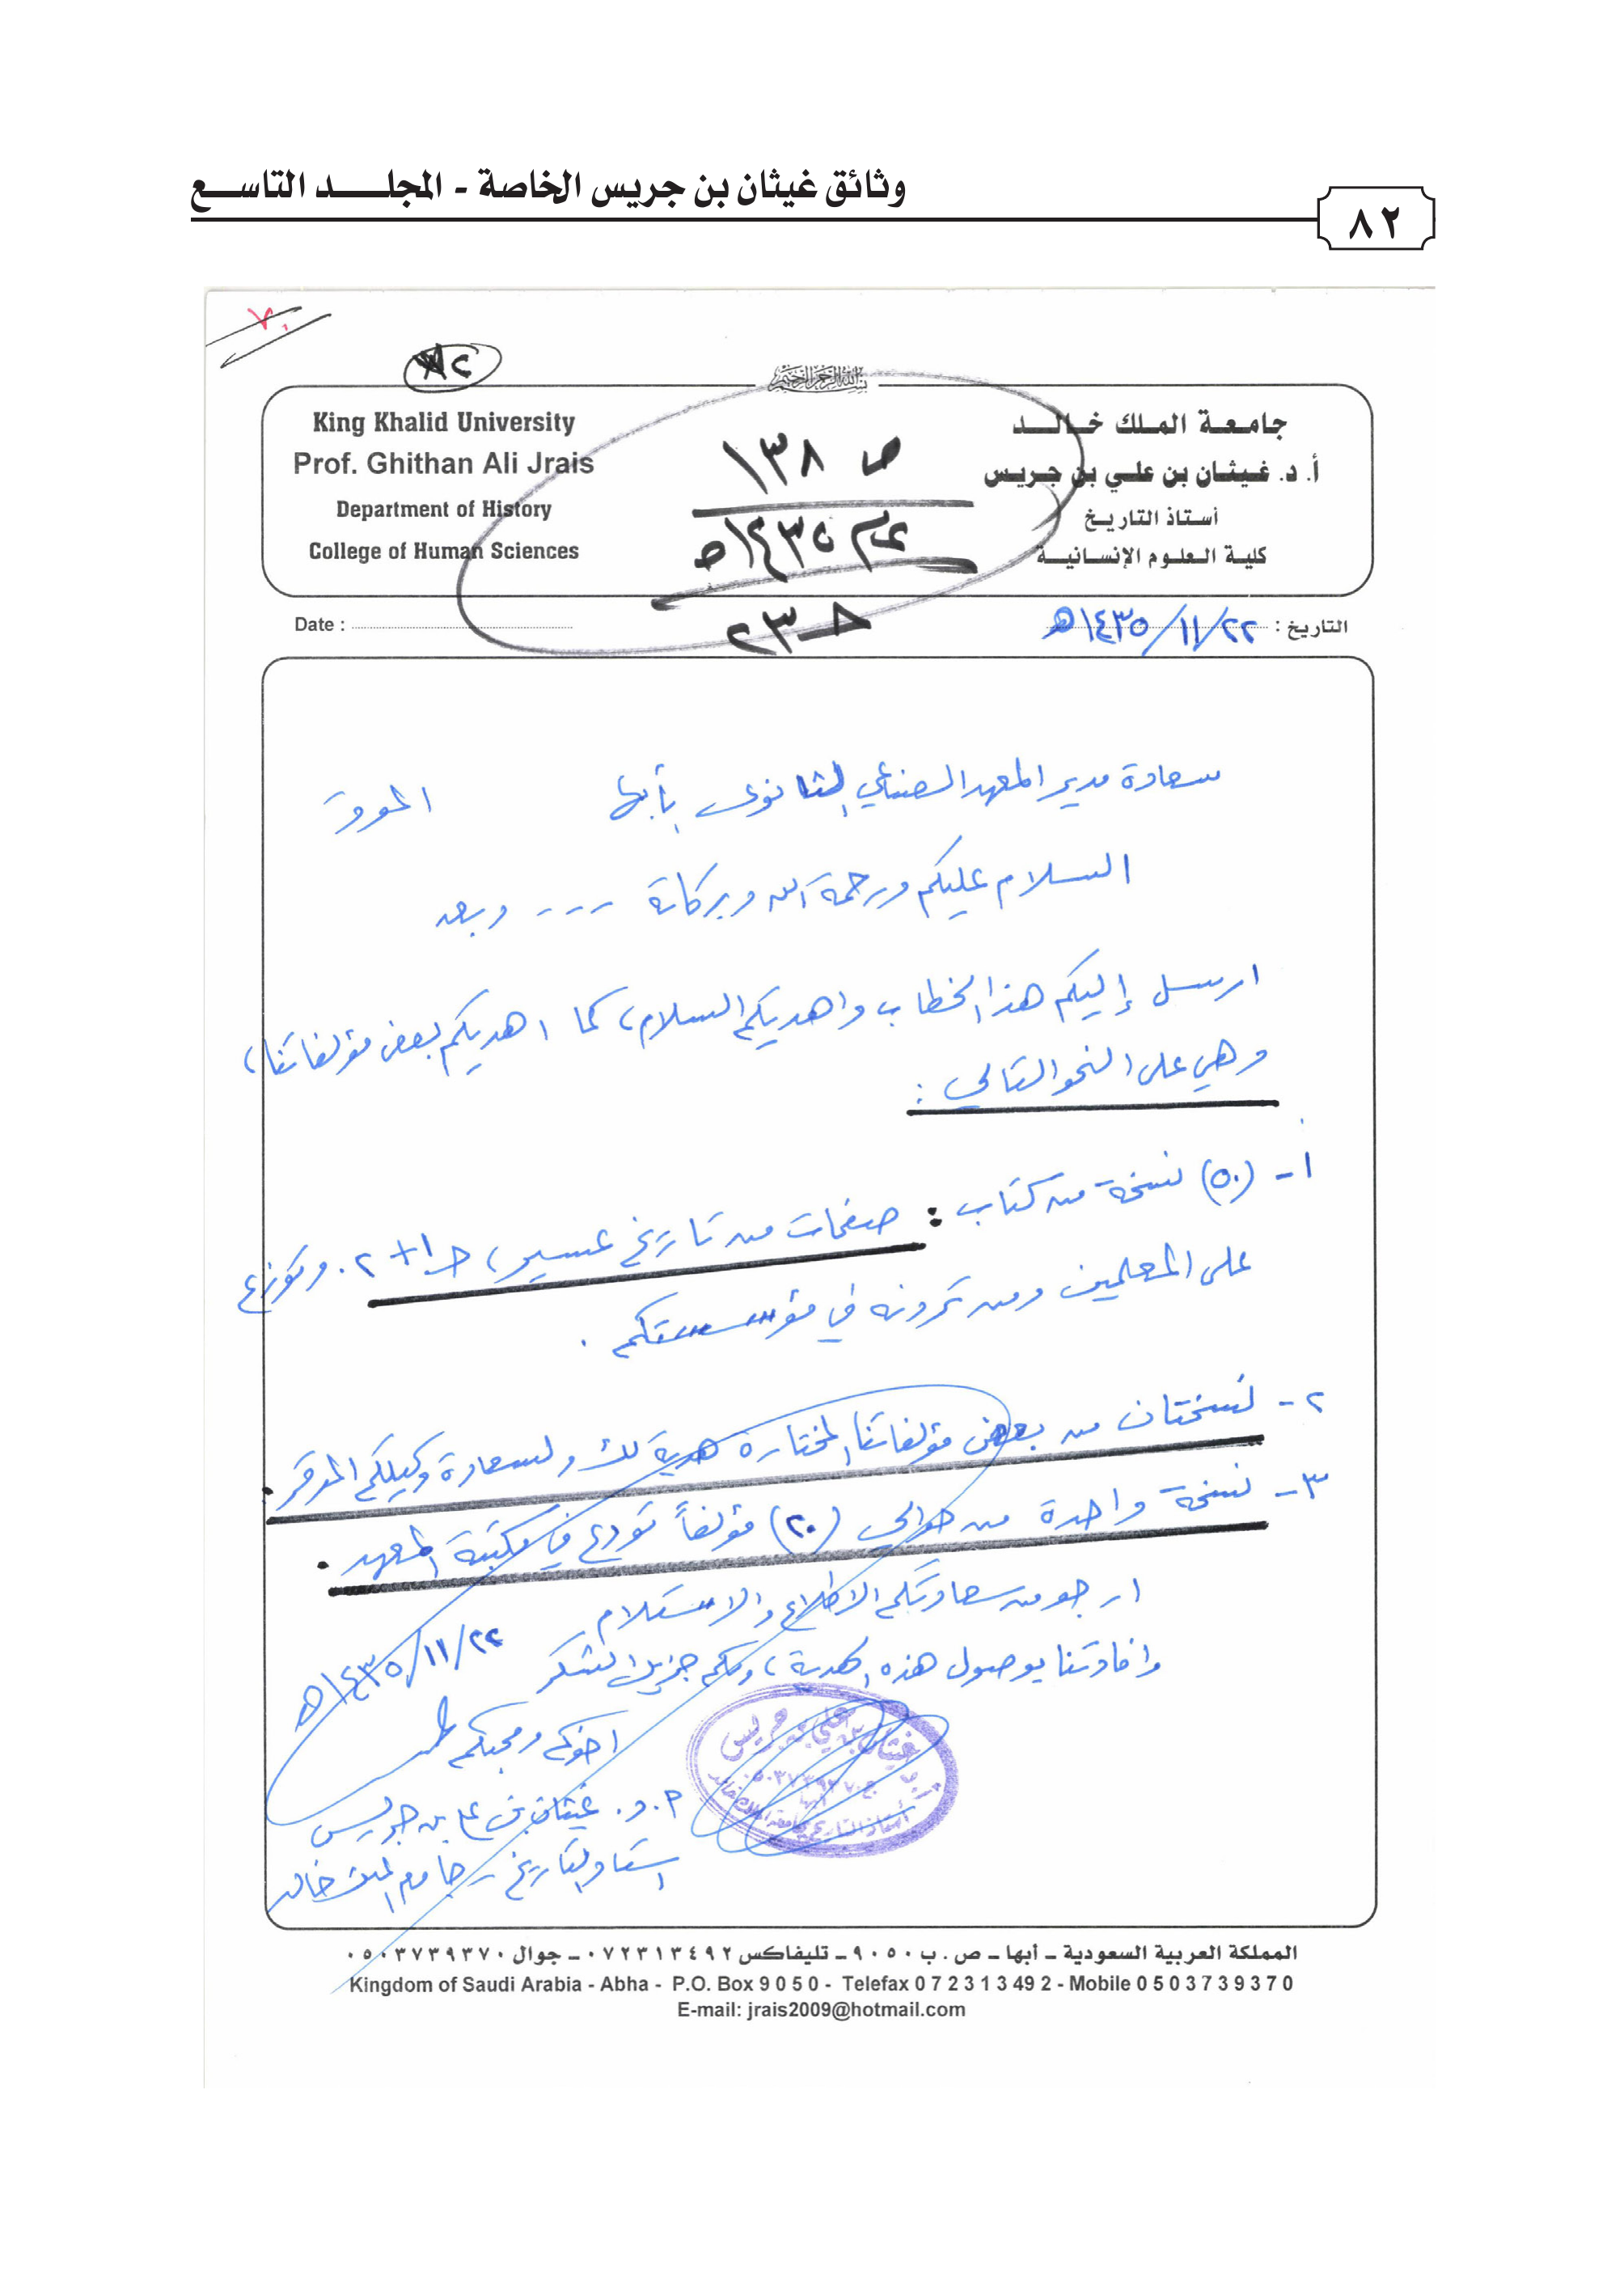 وثائق غيثان بن جريس الخاصة - المجلـــد التاســـع
٨٢
٧٠
٢
بسم الله الرحمن الرحيم
جامعة الملك خالد
أ. د. غيثان بن علي بن جريس
أستاذ التاريخ
كلية العلوم الإنسانية
King Khalid University
Prof. Ghithan Ali Jrais
Department of History
College of Human Sciences
ص ١٣٨
عام ١٤٣٥هـ
التاريخ : ٢٢/١١/١٤٣٥هـ
Date :
سعادة مدير المعهد الصناعي الثانوي بأبها الموقر
السلام عليكم ورحمة الله وبركاته ---- وبعد
ارسل إليكم هذا الخطاب واهديكم السلام، كما اهديكم بعض مؤلفاتنا،
وهي على النحو التالي :
١- (٥٠) نسخة من كتاب : صفحات من تاريخ عسير، جـ١+٢. وتوزع
على المعلمين ومن ترونه في مؤسستكم .
٢- نسختان من بعض مؤلفاتنا المختارة هدية لك ولسعادة وكيلكم الموقر .
٣- نسخة واحدة من حوالي (٢٠) مؤلفاً تودع في مكتبة المعهد .
ارجو من سعادتكم الاطلاع والاستلام
وافادتنا بوصول هذه الهدية، ولكم جزيل الشكر
٢٢/١١/١٤٣٥هـ
اخوكم ومحبكم
أ.د. غيثان بن علي بن جريس
استاذ التاريخ - جامعة الملك خالد
غيثان بن علي بن جريس
أبها
أستاذ التاريخ بجامعة الملك خالد
المملكة العربية السعودية – أبها – ص . ب ٩٠٥٠ – تليفاكس ٠٧٢٣١٣٤٩٢ – جوال ٠٥٠٣٧٣٩٣٧٠
Kingdom of Saudi Arabia - Abha - P.O. Box 9 0 5 0 - Telefax 0 7 2 3 1 3 49 2 - Mobile 0 5 0 3 7 3 9 3 7 0
E-mail: jrais2009@hotmail.com